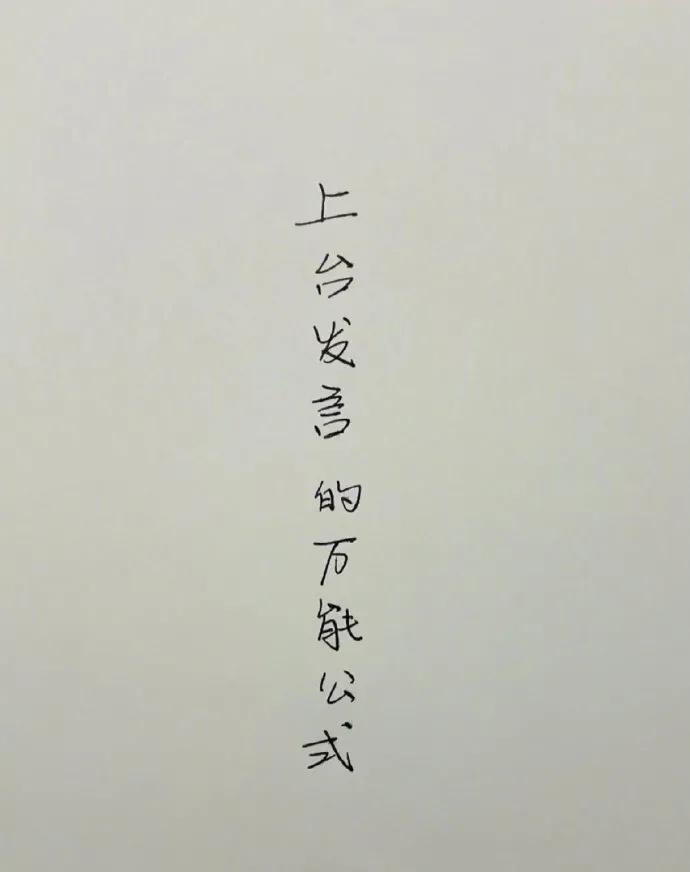 上台发言的万能公式